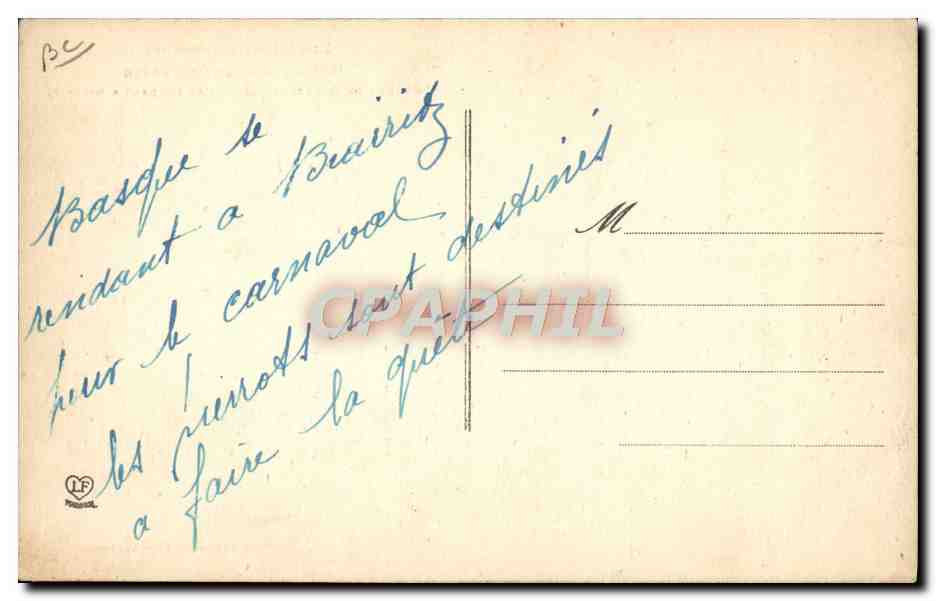 BC
Basque se
rendant a Biarritz
pour le carnaval
les pierrots sont destinés
a faire la quête
M
CPAPHIL
LF